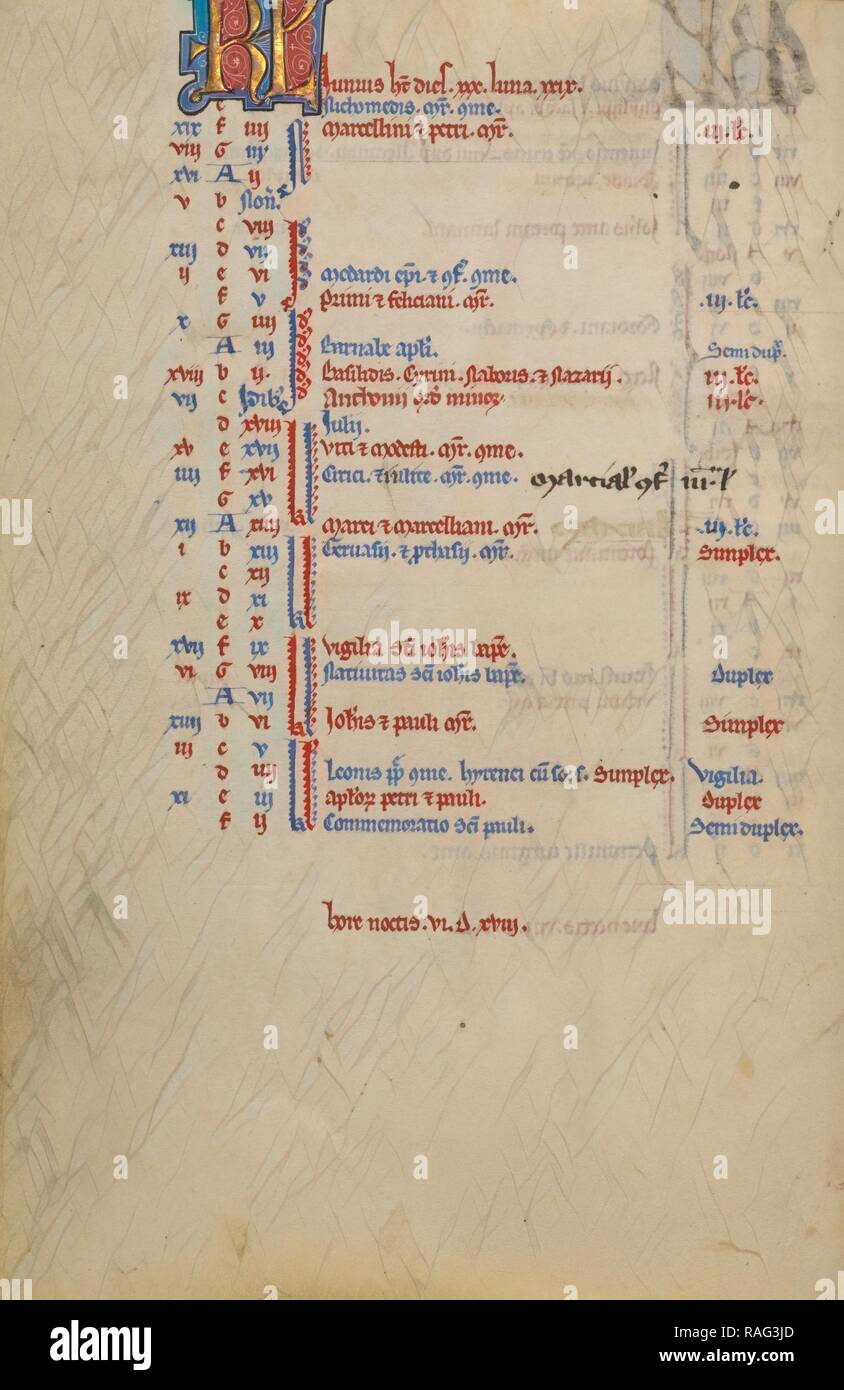 KL
Iunius ht dies. xxx. luna. xxix.
e Nichomedis. mr. 9me.
xix f iiij Marcellini & petri. mr. .iij. lc.
viij G iij
xvi A ij
v b Non.
c viij
xiij d vij
ij e vi Medardi epi & 9f. 9me.
f v Primi & feliciani. mr. .iij. lc.
x G iiij
A iij Barnabe apli. Semi dup.
xviij b ij. Basilidis. Cyrini. Naboris. & Nazarij. iij. lc.
vij c Idib Anthonij ord minor iij. lc.
d xviij Iulij.
xv e xvij Viti & modesti. mr. 9me.
iiij f xvi Cirici. & iulite. mr. 9me. Marcial 9f iij l
G xv
xij A xiiij Marci & marcelliani. mr. .iij. lc.
i b xiij Geruasij. & pthasij. mr. Simplex.
c xij
ix d xi
e x
xvij f ix Vigilia sci iohis bapte.
vi G viij Natiuitas sci iohis bapte. Duplex
A vij
xiiij b vi Iohis & pauli mr. Simplex
iij c v
d iiij Leonis pp 9me. hyrenei cu so. s. Simplex. Vigilia.
xi e iij aploz petri & pauli. Duplex
f ij Commemoratio sci pauli. Semi duplex.
hore noctis. vi. d. xviij.
a alamy stock photo
alamy
Image ID: RAG3JD
www.alamy.com